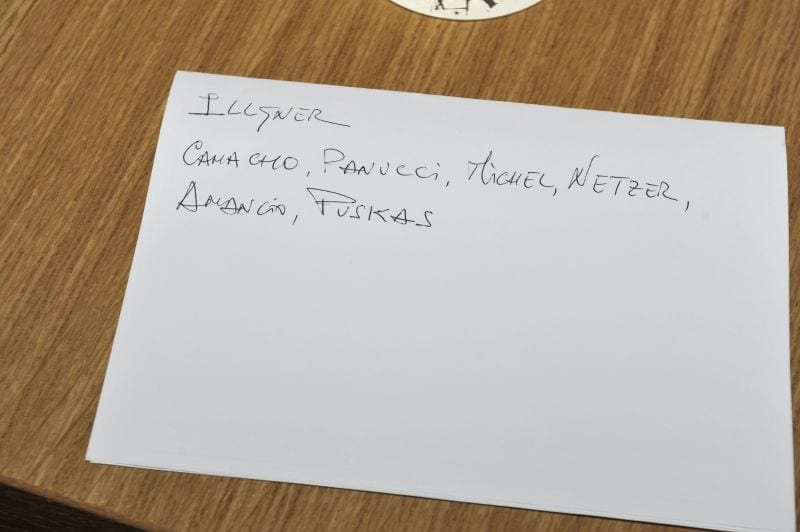 ILLGNER
CAMACHO, PANUCCI, MICHEL, NETZER,
AMANCIO, PUSKAS